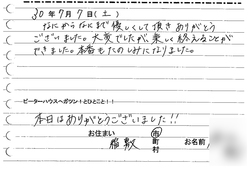 30年7月7日(土)
なにからなにまで優しくして頂きありがとう
ございました。大変でしたが、楽しく終えることが
できました。本番もたのしみになりました。
ピーターハウスへガツン!とひとこと!!
本日はありがとうございました!!
お住まい
稲敷 市 町 村 お名前